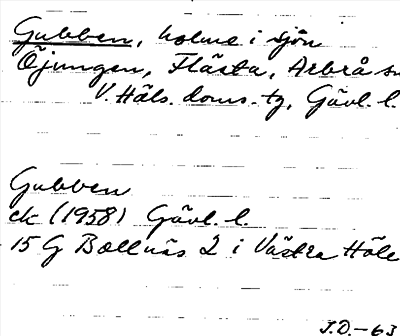 Gubben, holme i sjön
Öjungen, Flästa, Arbrå sn
V. Häls. doms. tg, Gävl. l.
Gubben
ek (1958) Gävl. l.
15 G Bollnäs 2 i Västra Häls
J.D.-63